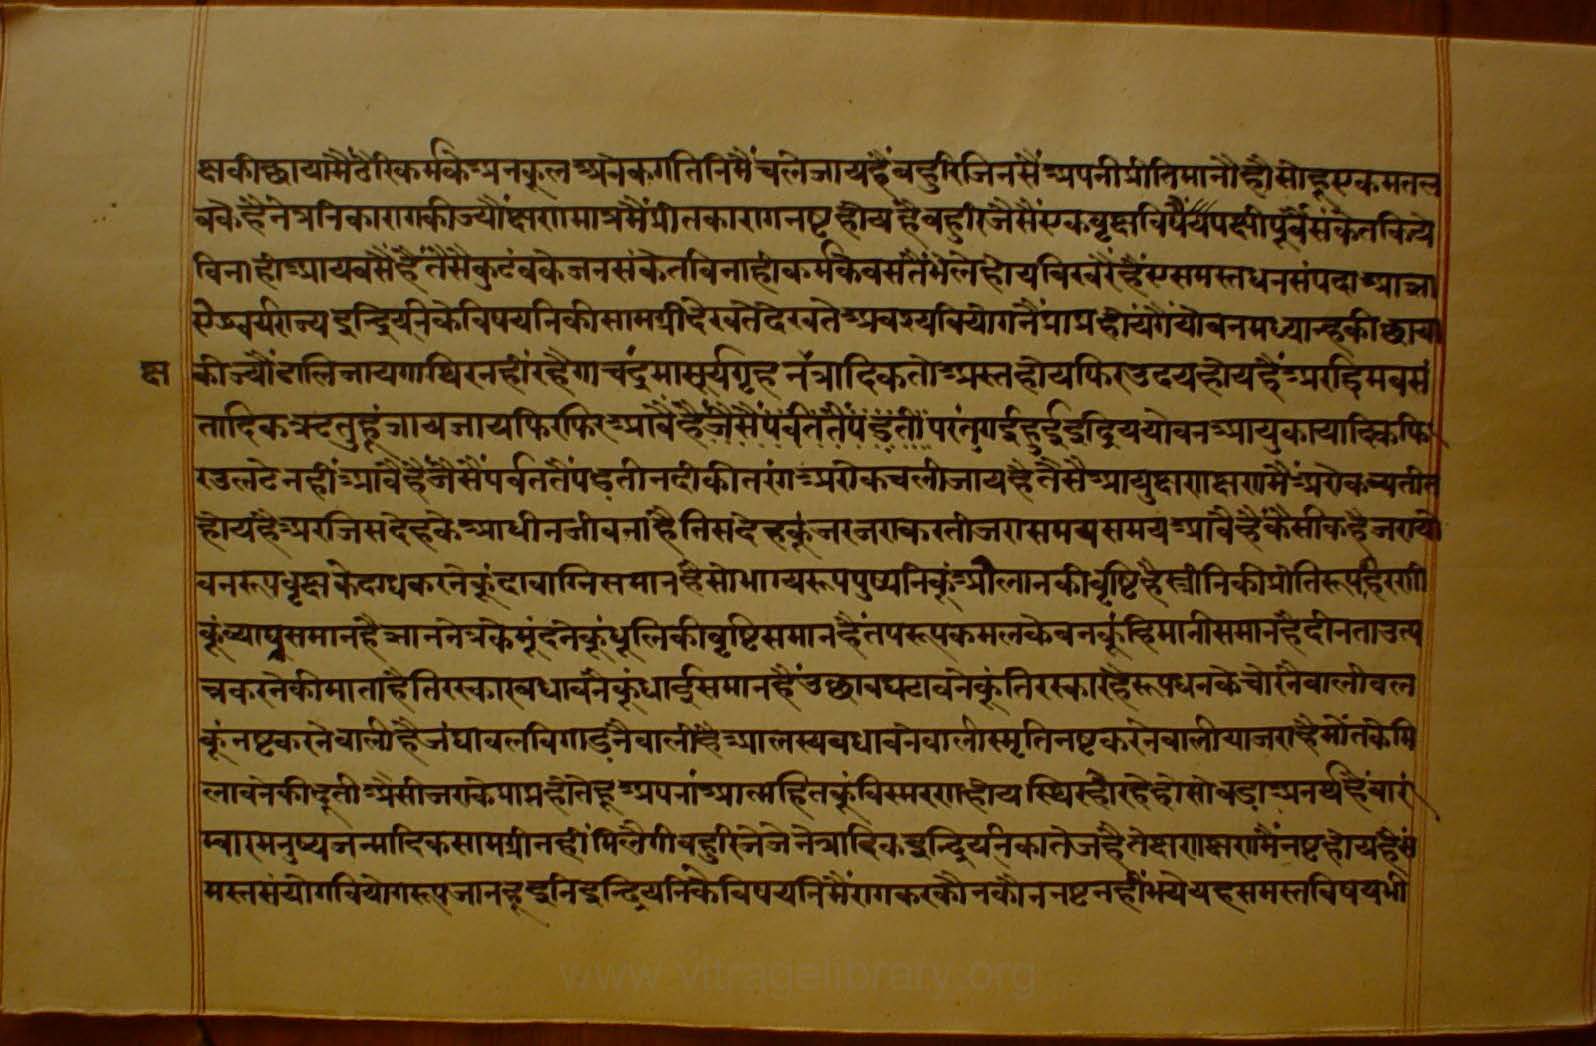 क्षकीछायामैंठैरिकर्मकेअनकूलअनेकगतिनिमैंचलेजायहैंबहुरिजिनसैंअपनीप्रीतिमानौहौसोहूएकमतल
बकेहैनेत्रनिकारागकीज्यौंक्षणमात्रमैंप्रीतकारागनष्टहोयहैबहुरिजैसैंएकवृक्षविषैंपक्षीपूर्वैसंकेतकिये
विनाहीआयबसैंहैंतैसैंकुटंबकेजनसंकेतविनाहीकर्मकेवसतैंभेलेहोयबिखरैंहैंएसमस्तधनसंपदाआज्ञा
ऐश्वर्यराज्यइन्द्रियनिकेविषयनिकीसामग्रीदेखतेदेखतेअवश्यवियोगनैंप्राप्तहोयंगैंयोबनमध्यान्हकीछाया
कीज्यौंढालिजायगाथिरनहींरहैगाचंद्रमासूर्यगृहनक्षत्रादिकतोअस्तहोयफिरउदयहोयहैंअरहिमवसं
तादिकऋतुहूंजायजायफिरफिरआवैंहैंपरंतुगईहुईइन्द्रिययोबनआयुकायादिकफि
रउलटेनहींआवैंहैंजैसैंपर्वततैंपड़तीनदीकीतरंगअरोकचलीजायहैतैसैआयुक्षणक्षणमैंअरोकव्यतीत
होयहैअरजिसदेहकेआधीनजीवनाहैतिसदेहकूंजरजराकरतीजरासमयसमयआवैहैकैसीकहैजरायो
बनरूपवृक्षकेदग्धकरनेकूंदावाग्निसमानहैसोभाग्यरूपपुष्पनिकूंओलानकीवृष्टिहैस्त्रीनिकीप्रीतिरूपहिरणी
कूंव्याघ्रसमानहैज्ञाननेत्रकेमूंदनेकूंधूलिकीवृष्टिसमानहैतपरूपकमलकेवनकूंहिमानीसमानहैदीनताउत्प
न्नकरनेकीमाताहैतिरस्कारबधावनेकूंधाईसमानहैउछावघटावनेकूंतिरस्कारहैरूपधनकेचोरनैवालीबल
कूंनष्टकरनेवालीहैजंघाबलबिगाड़नैवालीहैआलस्यबधावनेवालीस्मृतिनष्टकरनेवालीयाजराहैमोतकेमि
लावनेकीदूतीअैसीजराकेप्राप्तहोतेहूअपनांआत्महितकूंविस्मरणहोयस्थिरहौरहेहोसोबड़ाअनर्थहैबारं
म्बारमनुष्यजन्मादिकसामग्रीनहींमिलैगीबहुरिजेजेनेत्रादिकइन्द्रियनिकातेजहैतेक्षणक्षणमैंनष्टहोयहैस
मस्तसंयोगवियोगरूपजानहूइनिइन्द्रियनिकेविषयनिमैंरागकरकौनकौननष्टनहींभयेयहसमस्तविषयभी
क्ष
www.vitragelibrary.org